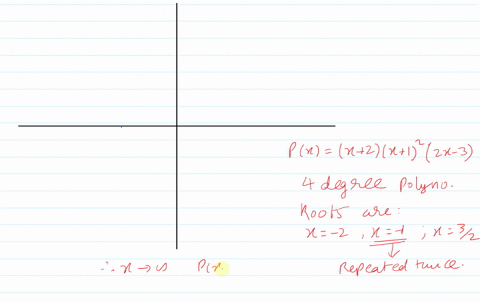 P(x) = (x+2)(x+1)²(2x-3)
4 degree Polyno.
Roots are:
x=-2 , x=-1 ; x=3/2
Repeated twice.
∴ x → ∞ P(x